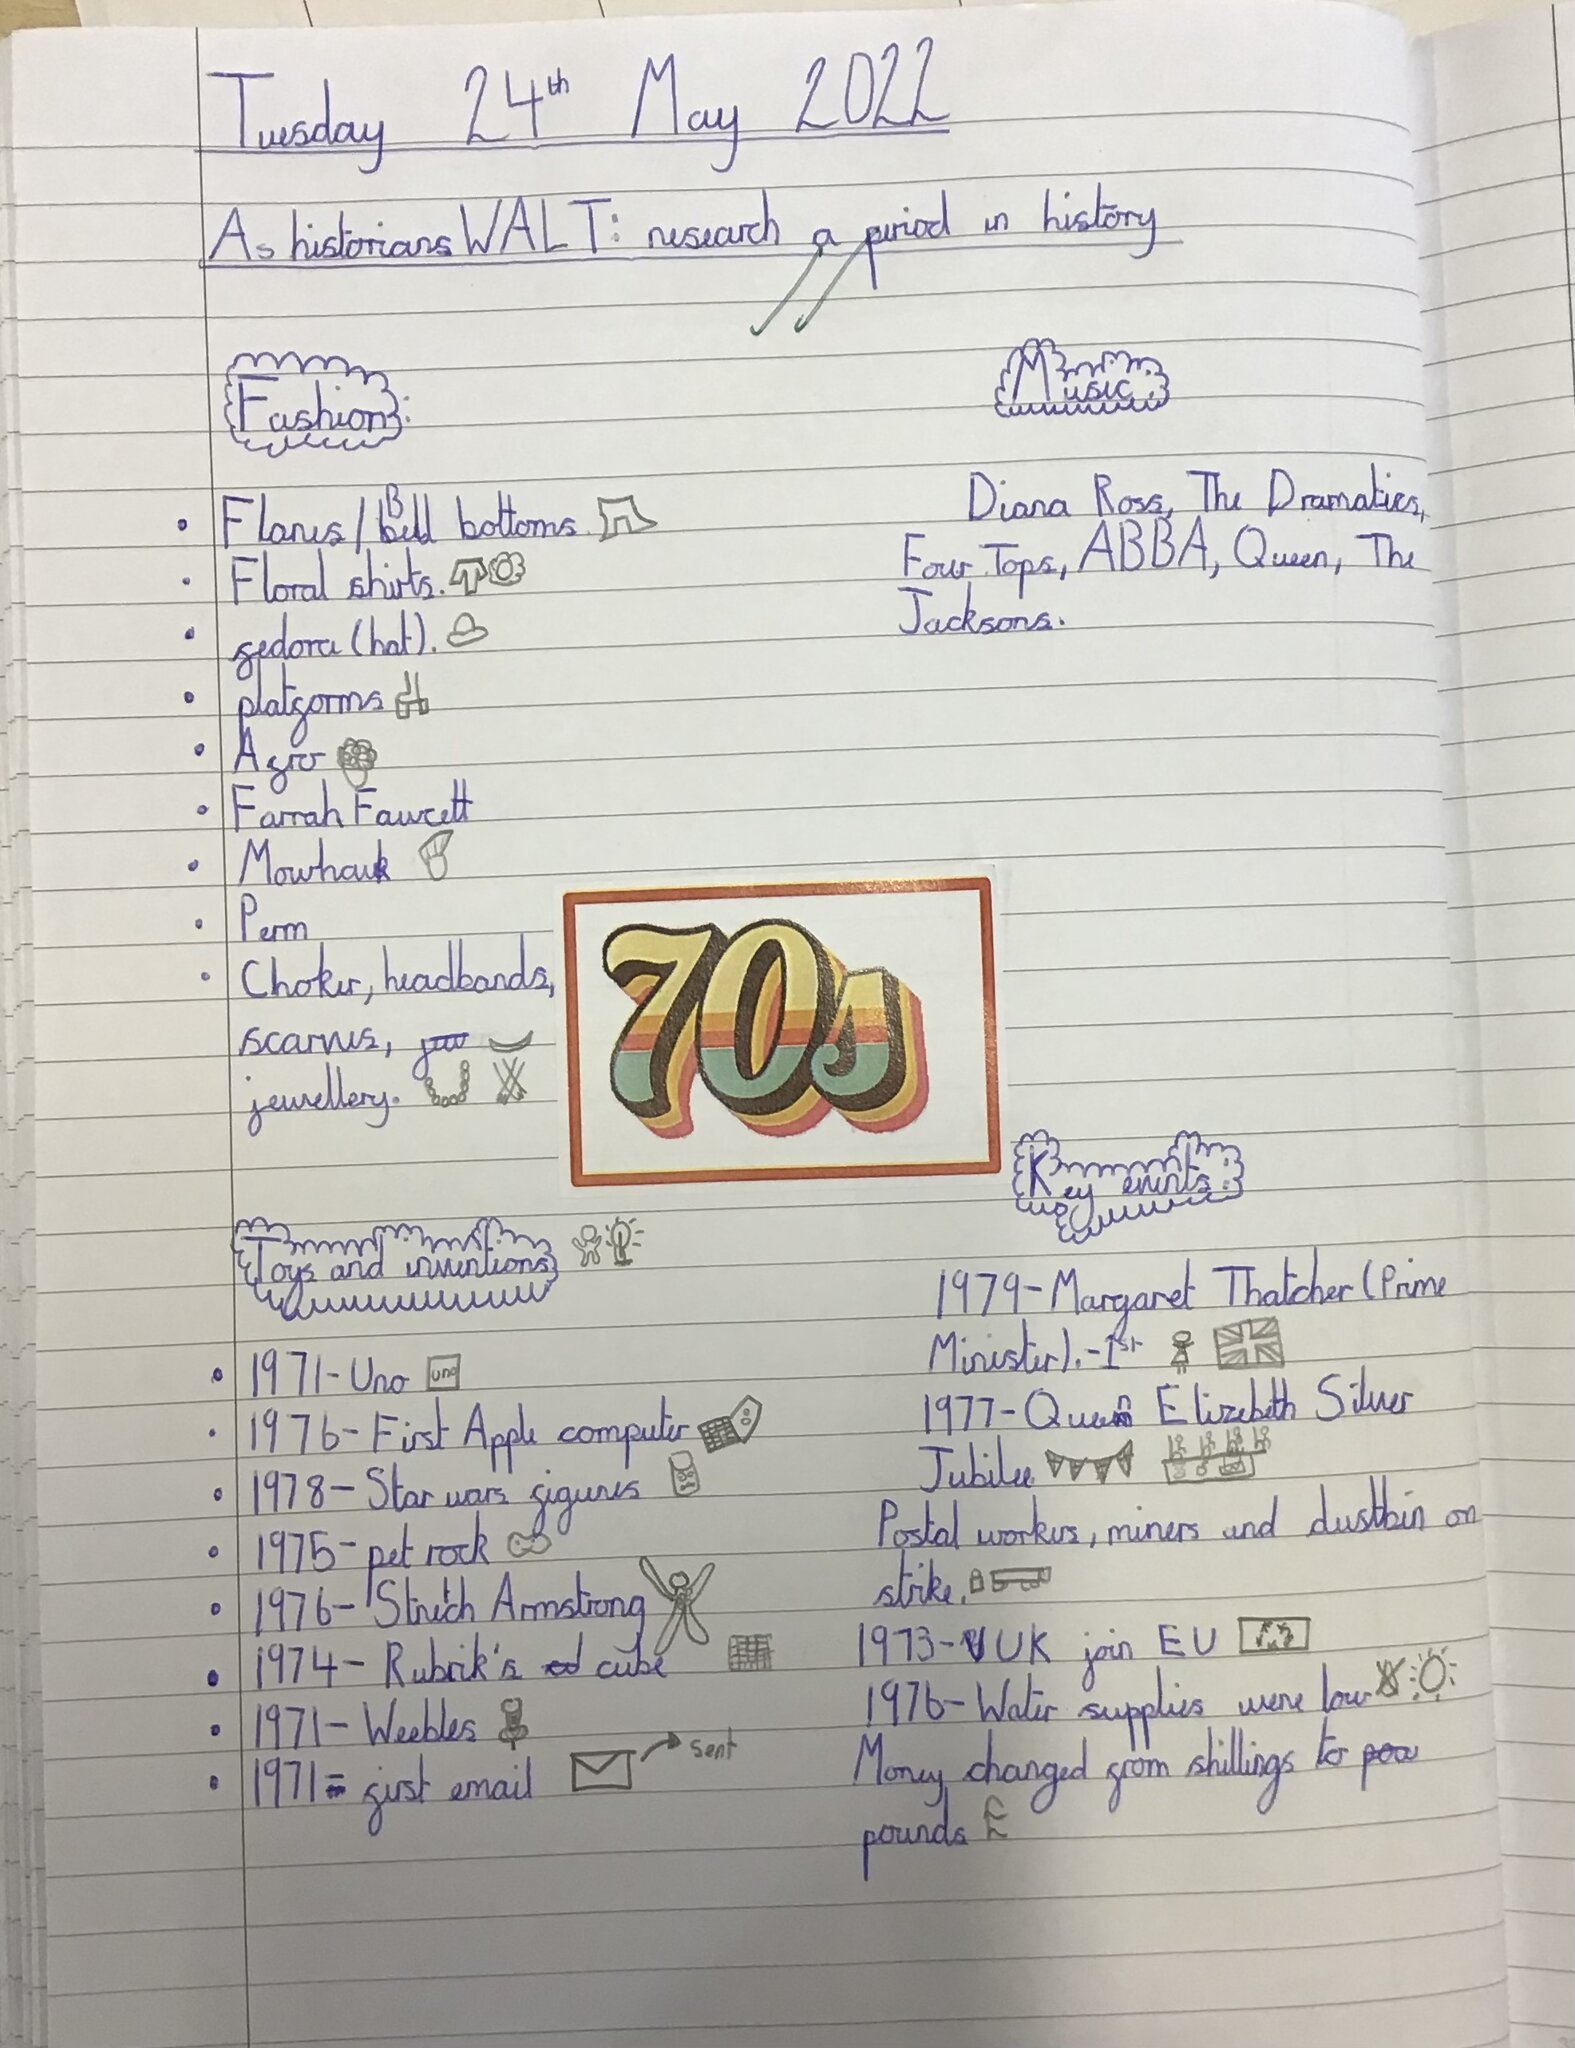 Tuesday 24th May 2022
As historians WALT: research a period in history
Fashion:
• Flares/Bell bottoms.
• Floral shirts.
• fedora (hat).
• platforms
• Afro
• Farrah Fawcett
• Mowhawk
• Perm
• Choker, headbands,
scarves,
jewellery.
Music:
Diana Ross, The Dramatics,
Four Tops, ABBA, Queen, The
Jacksons.
70s
Toys and inventions
• 1971- Uno uno
• 1976- First Apple computer
• 1978- Star wars figures
• 1975- pet rock
• 1976- Stretch Armstrong
• 1974- Rubrik's cube
• 1971- Weebles
• 1971- first email sent
Key events:
1979- Margaret Thatcher (Prime
Minister).-1st
1977- Queen Elizebeth Silver
Jubilee
Postal workers, miners and dustbin on
strike.
1973- UK join EU
1976- Water supplies were low
Money changed from shillings to
pounds £